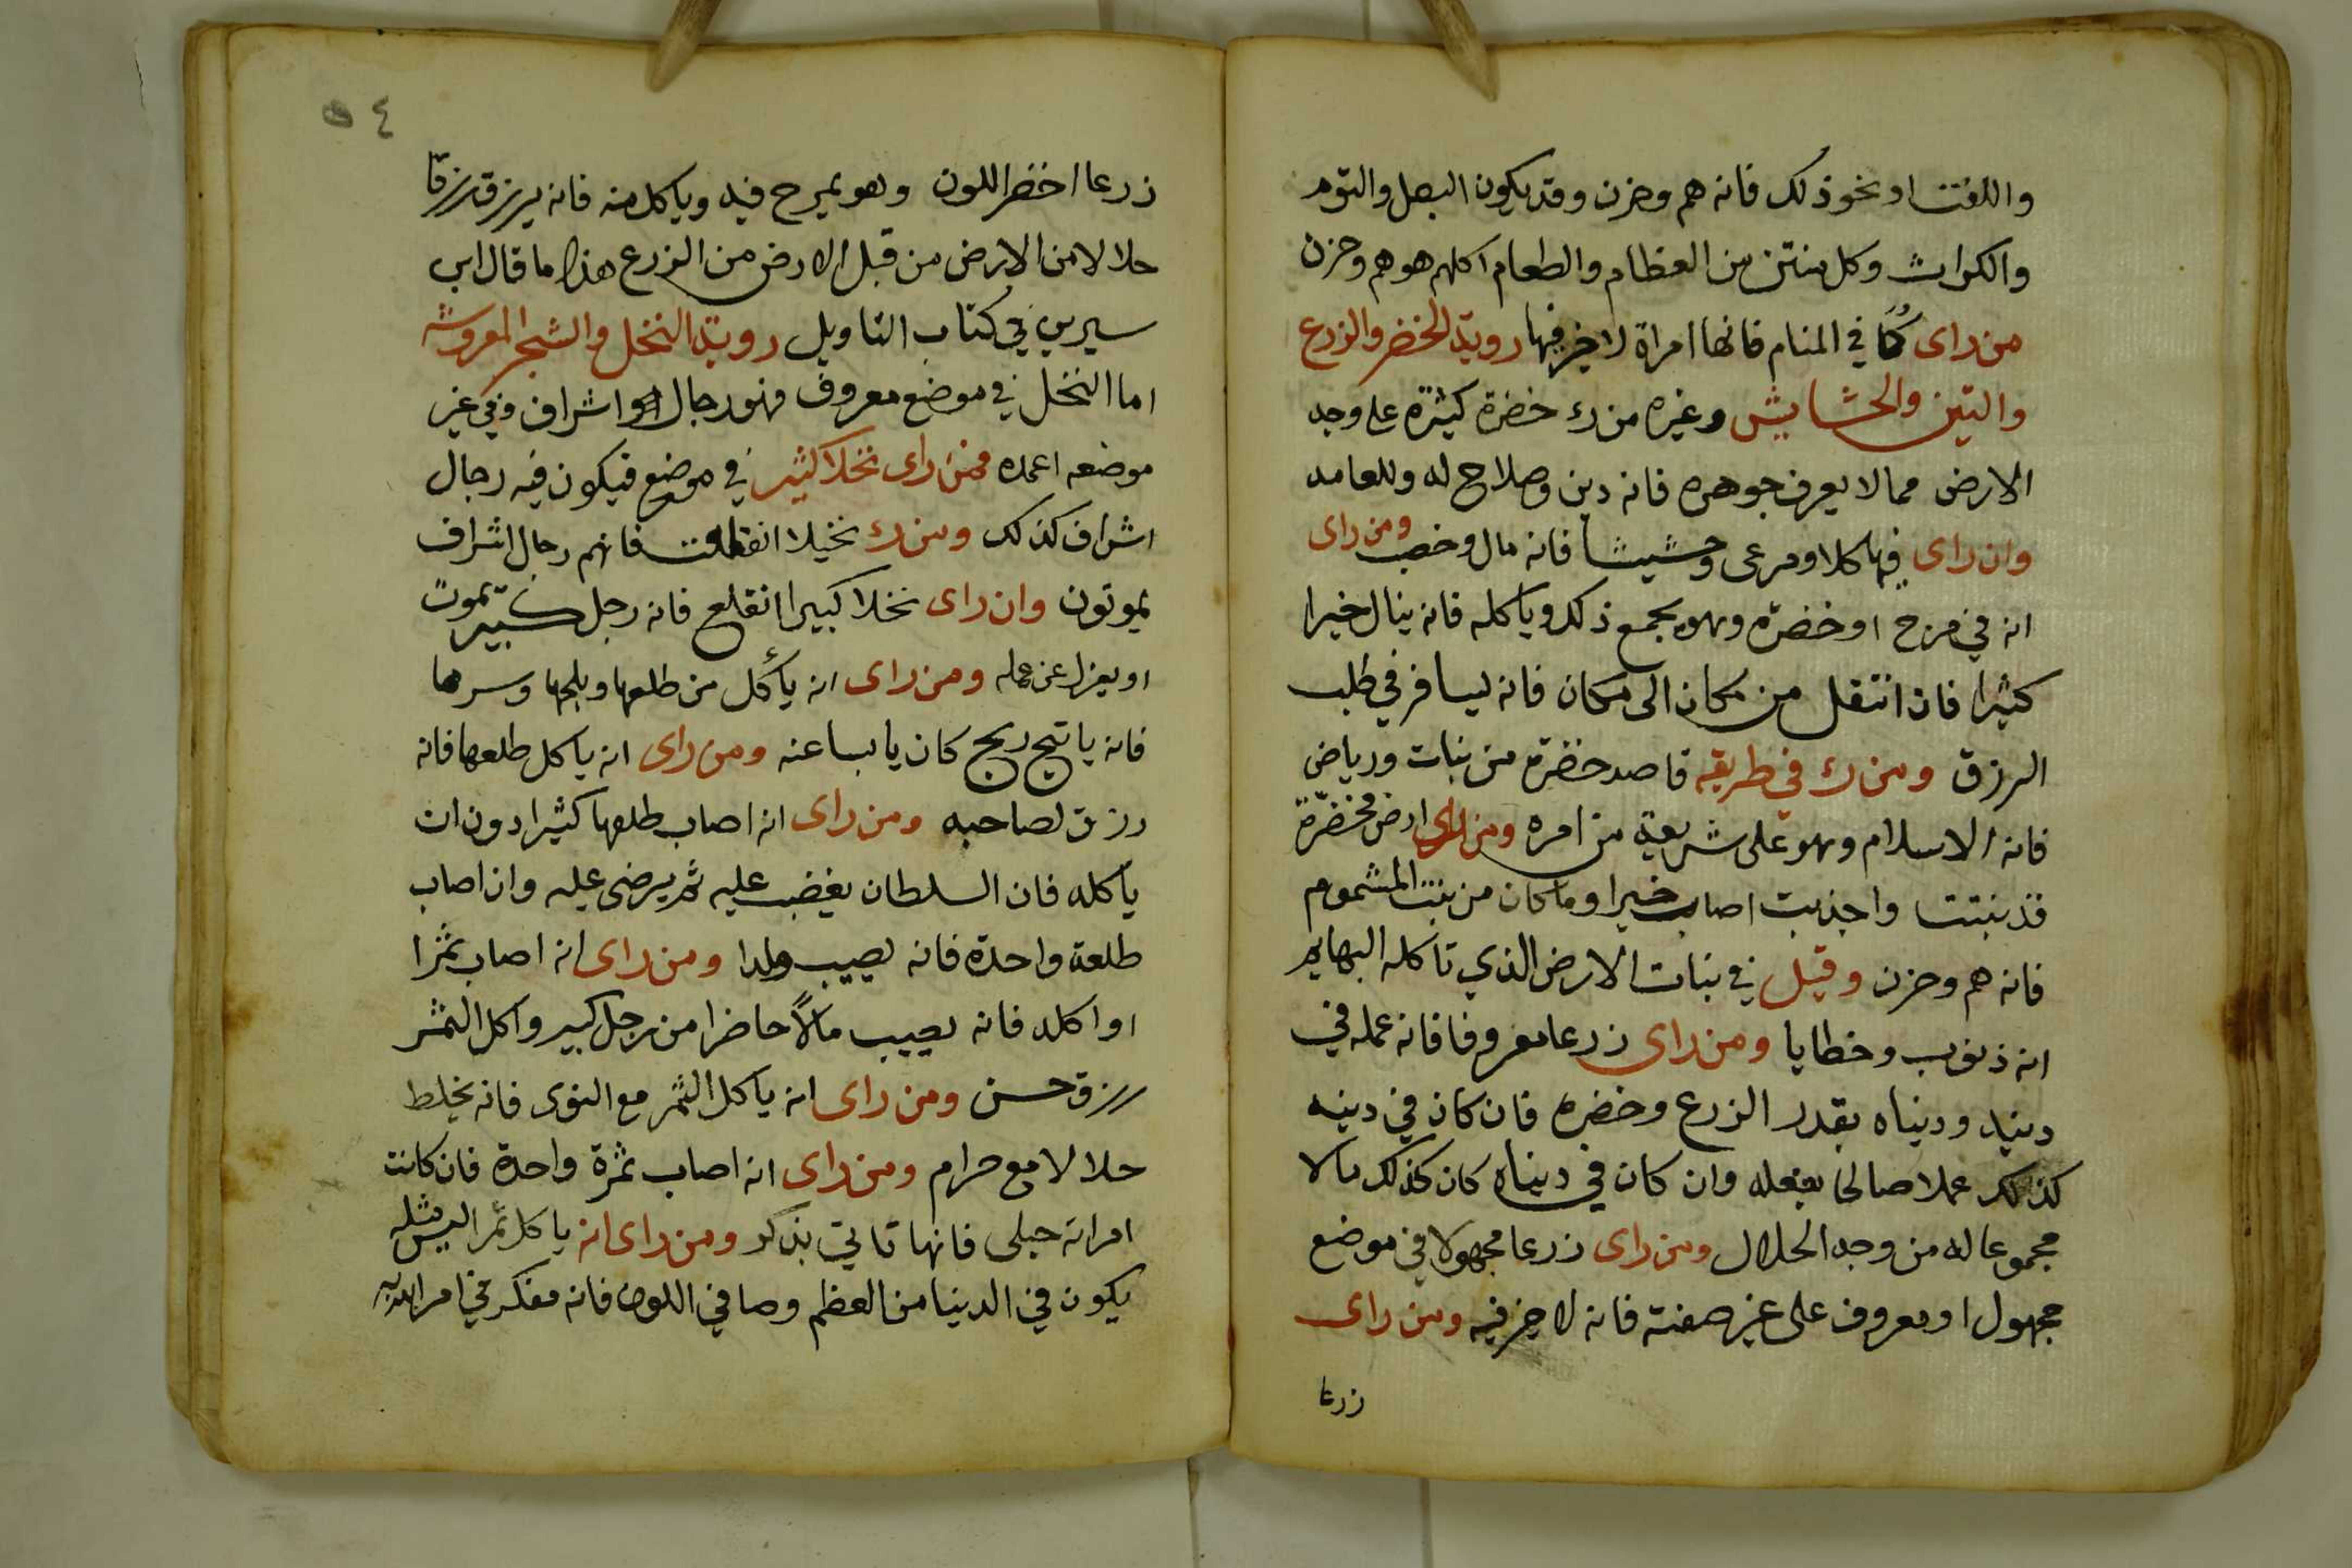 واللفت او نحو ذلك فانه هم وحزن وقد يكون البصل والثوم
والكراث وكل منتن من العظام والطعام اكلهم هو هم وحزن
من راى كُمّا في المنام فانها امراة لا خير فيها روية الخضر والزرع
والتين والحشايش وغيره من رء خضرة كثيرة على وجه
الارض مما لا يعرف جوهره فانه دين وصلاح له وللعامه
وان راى فيها كلا ومرعى وحشيشا فانه مال وخصب ومن راى
انه في مرج او خضرة وهو يجمع ذلك وياكله فانه ينال خيرا
كثيرا فان انتقل من مكان الى مكان فانه يسافر في طلب
الرزق ومن رء في طريقه قاصد خضرة من نبات ورياض
فانه الاسلام وهو على شريعة من امره ومن راى ارض مخضرة
قد نبتت واجذبت اصاب خيرا وما كان من نبت المشموم
فانه هم وحزن وقيل في نبات الارض الذي تاكله البهايم
انه ذنوب وخطايا ومن راى زرعا معروفا فانه عمله في
دينه ودنياه بقدر الزرع وخضره فان كان في دينه
كذلك عملا صالحا يفعله وان كان في دنياه كان كذلك مالا
مجموعا له من وجه الحلال ومن راى زرعا مجهولا في موضع
مجهول او معروف على غير صفته فانه لا خير فيه ومن راى
زرعا
٥٤
زرعا اخضر اللون وهو يمرح فيه وياكل منه فانه يرزق رزقا
حلالا من الارض من قبل الارض من الزرع هذا ما قال ابن
سيرين في كتاب التاويل روية النخل والشجر المعروشه
اما النخل في موضع معروف فهو رجال اشراف وفي غير
موضعه اعمده فمن راى نخلا كثير في موضع فيكون فيه رجال
اشراف كذلك ومن رء نخيلا انقطعت فانهم رجال اشراف
يموتون وان راى نخلا كبيرا انقلع فانه رجل كبير يموت
او يعزل عن عمله ومن راى انه يأكل من طلعها وبلحها وبسرها
فانه ياتيح ريح كان يابسا عنه ومن راى انه ياكل طلعها فانه
رزق لصاحبه ومن راى انه اصاب طلعها كثيرا دون ان
ياكله فان السلطان يغضب عليه ثم يرضى عليه وان اصاب
طلعة واحدة فانه يصيب ولدا ومن راى انه اصاب ثمرا
او اكله فانه يصيب مالاً حاضرا من رجل كبير واكل الثمر
رزق حسن ومن راى انه ياكل الثمر مع النوى فانه يخلط
حلالا مع حرام ومن راى انه اصاب ثمرة واحدة فان كانت
امراته حبلى فانها تاتي بذكر ومن راى انه ياكل تمرا ليس مثله
يكون في الدنيا من العظم وصافي اللون فانه مفكر في امر الله